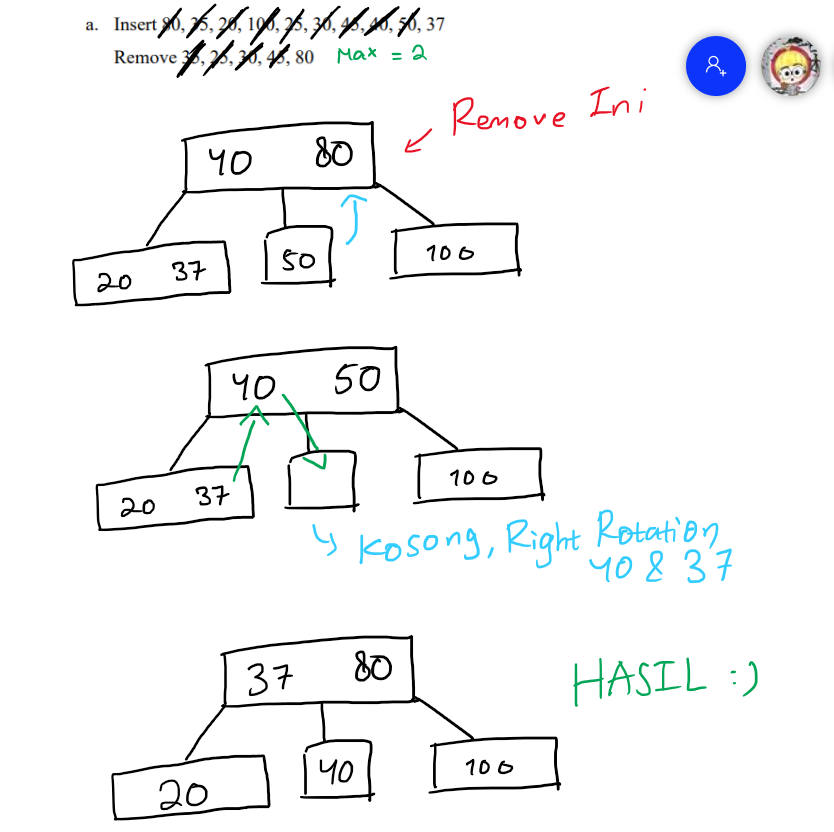 a. Insert 80, 35, 20, 100, 25, 30, 45, 40, 50, 37
Remove 35, 25, 30, 45, 80 Max = 2
Remove Ini
40 80
20 37 50 100
40 50
20 37 100
Kosong, Right Rotation
40 & 37
37 80
HASIL :)
20 40 100